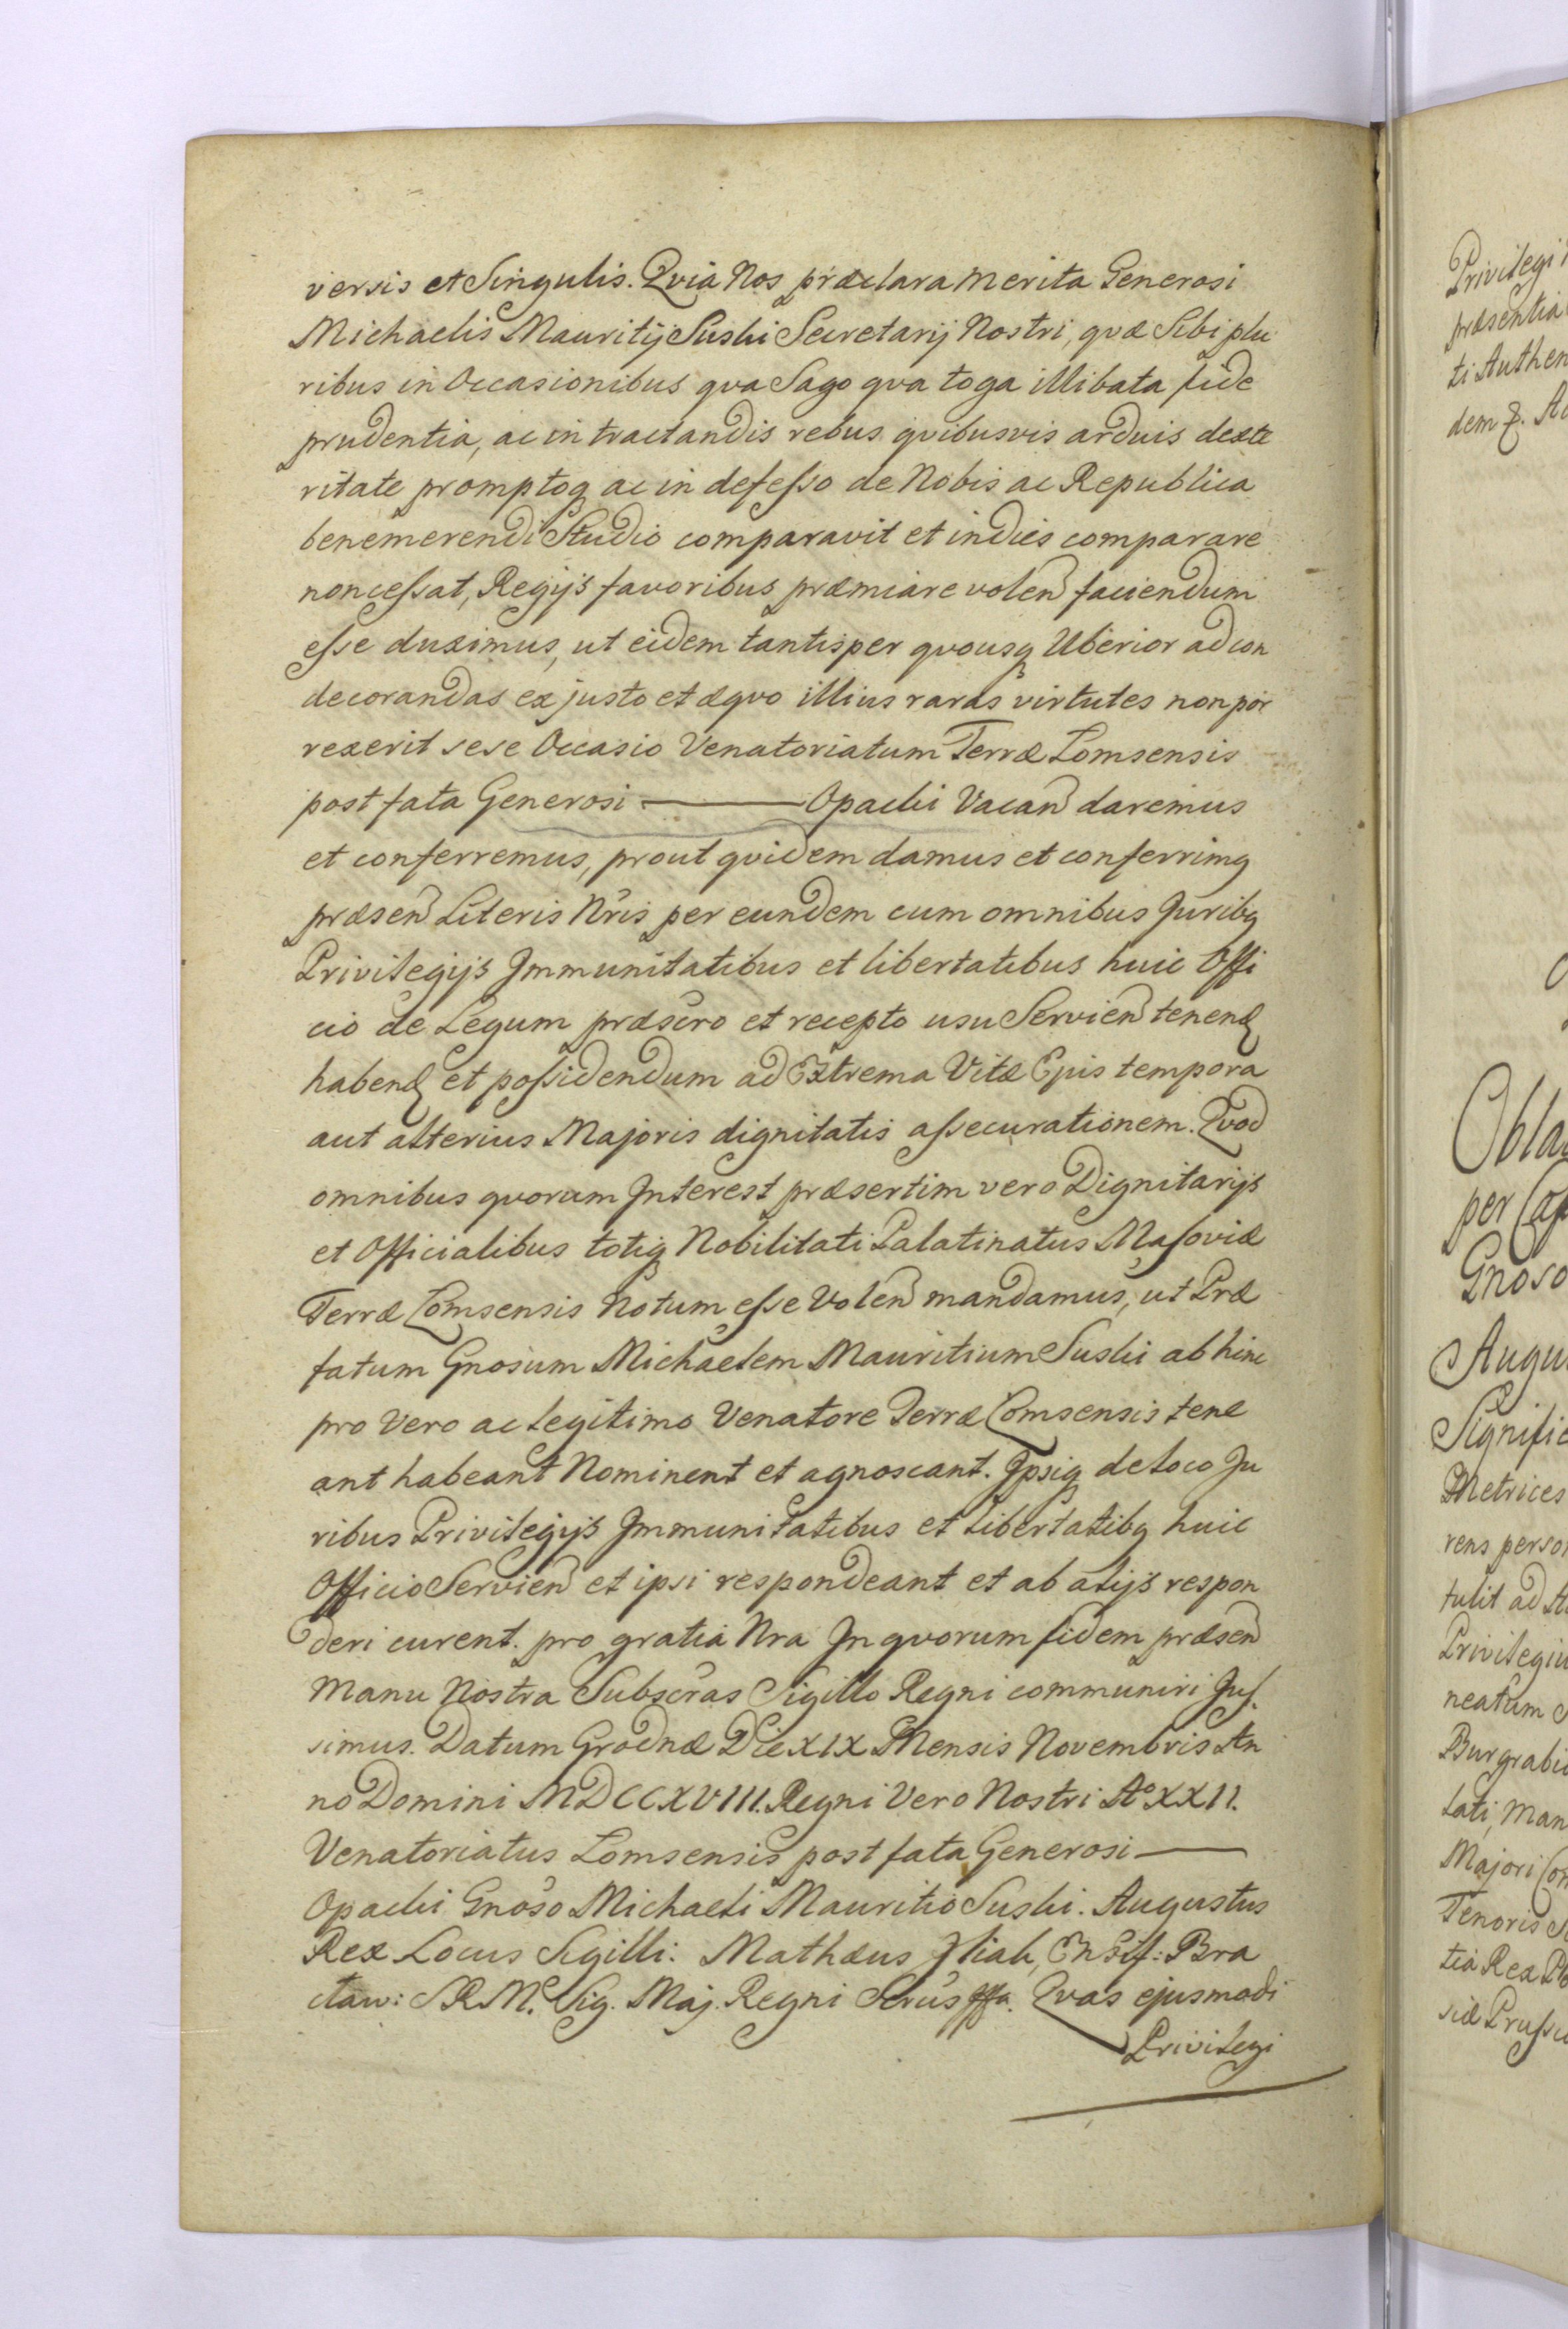 versis et Singulis. Qvia Nos præclara merita Generosi
Michaelis Mauritij Suski Secretarij Nostri, qvæ Sibi plu
ribus in Occasionibus qva Sago qva toga illibata fide
prudentia, ac in tractandis rebus qvibusvis arduis dexte
ritate promptoq ac in defesso de Nobis ac Republica
benemerendi Studio comparavit et indies comparare
non cessat, Regijs favoribus præmiare volen faciendum
esse duximus, ut eidem tantisper qvousq Uberior ad con
decorandas ex justo et æqvo illius raras virtutes non por
rexerit sese Occasio Venatoriatum Terræ Lomsensis
post fata Generosi ——— Opacki Vacan daremus
et conferremus, prout qvidem damus et conferrimq
præsen Literis Nris per eundem cum omnibus Juribq
Privilegijs Jmmunitatibus et libertatibus huic Offi
cio de Legum præscro et recepto usu Servien tenend
habend et possidendum ad Extrema Vitæ Ejus tempora
aut alterius Majoris dignitatis assecurationem. Qvod
omnibus qvorum Jnterest præsertim vero Dignitarijs
et Officialibus totiq Nobilitati Palatinatus Masoviæ
Terræ Lomsensis Notum esse Volen mandamus, ut Præ
fatum Gnosum Michaelem Mauritium Suski ab hinc
pro Vero ac legitimo Venatore Terræ Lomsensis tene
ant habeant Nominent et agnoscant. Jpsiq de loco Ju
ribus Privilegijs Jmmunitatibus et libertatibq huic
Officio Servien et ipsi respondeant et ab alijs respon
deri curent. pro gratia Nra Jn qvorum fidem præsen
Manu Nostra Subscras Sigillo Regni communiri Jus
simus. Datum Grodnæ Die XIX Mensis Novembris An
no Domini MDCCXVIII. Regni Vero Nostri Aº XXII.
Venatoriatus Lomsensis post fata Generosi ———
Opacki Gnoso Michaeli Mauritio Suski. Augustus
Rex Locus Sigilli: Mathæus Jliak, Ensif: Bra
claw: SRM. Sig. Maj. Regni Scrus Qvas ejusmodi
Privilegi
Privilegi
præsentia
ti Authen
dem
Obla
per Cap
Gnoso
Augu
Signific
Metrices
rens person
tulit ad
Privilegiu
neatum
Burgrabi
tati, Man
Majori Con
Tenoris
tia Rex
siæ Prussi